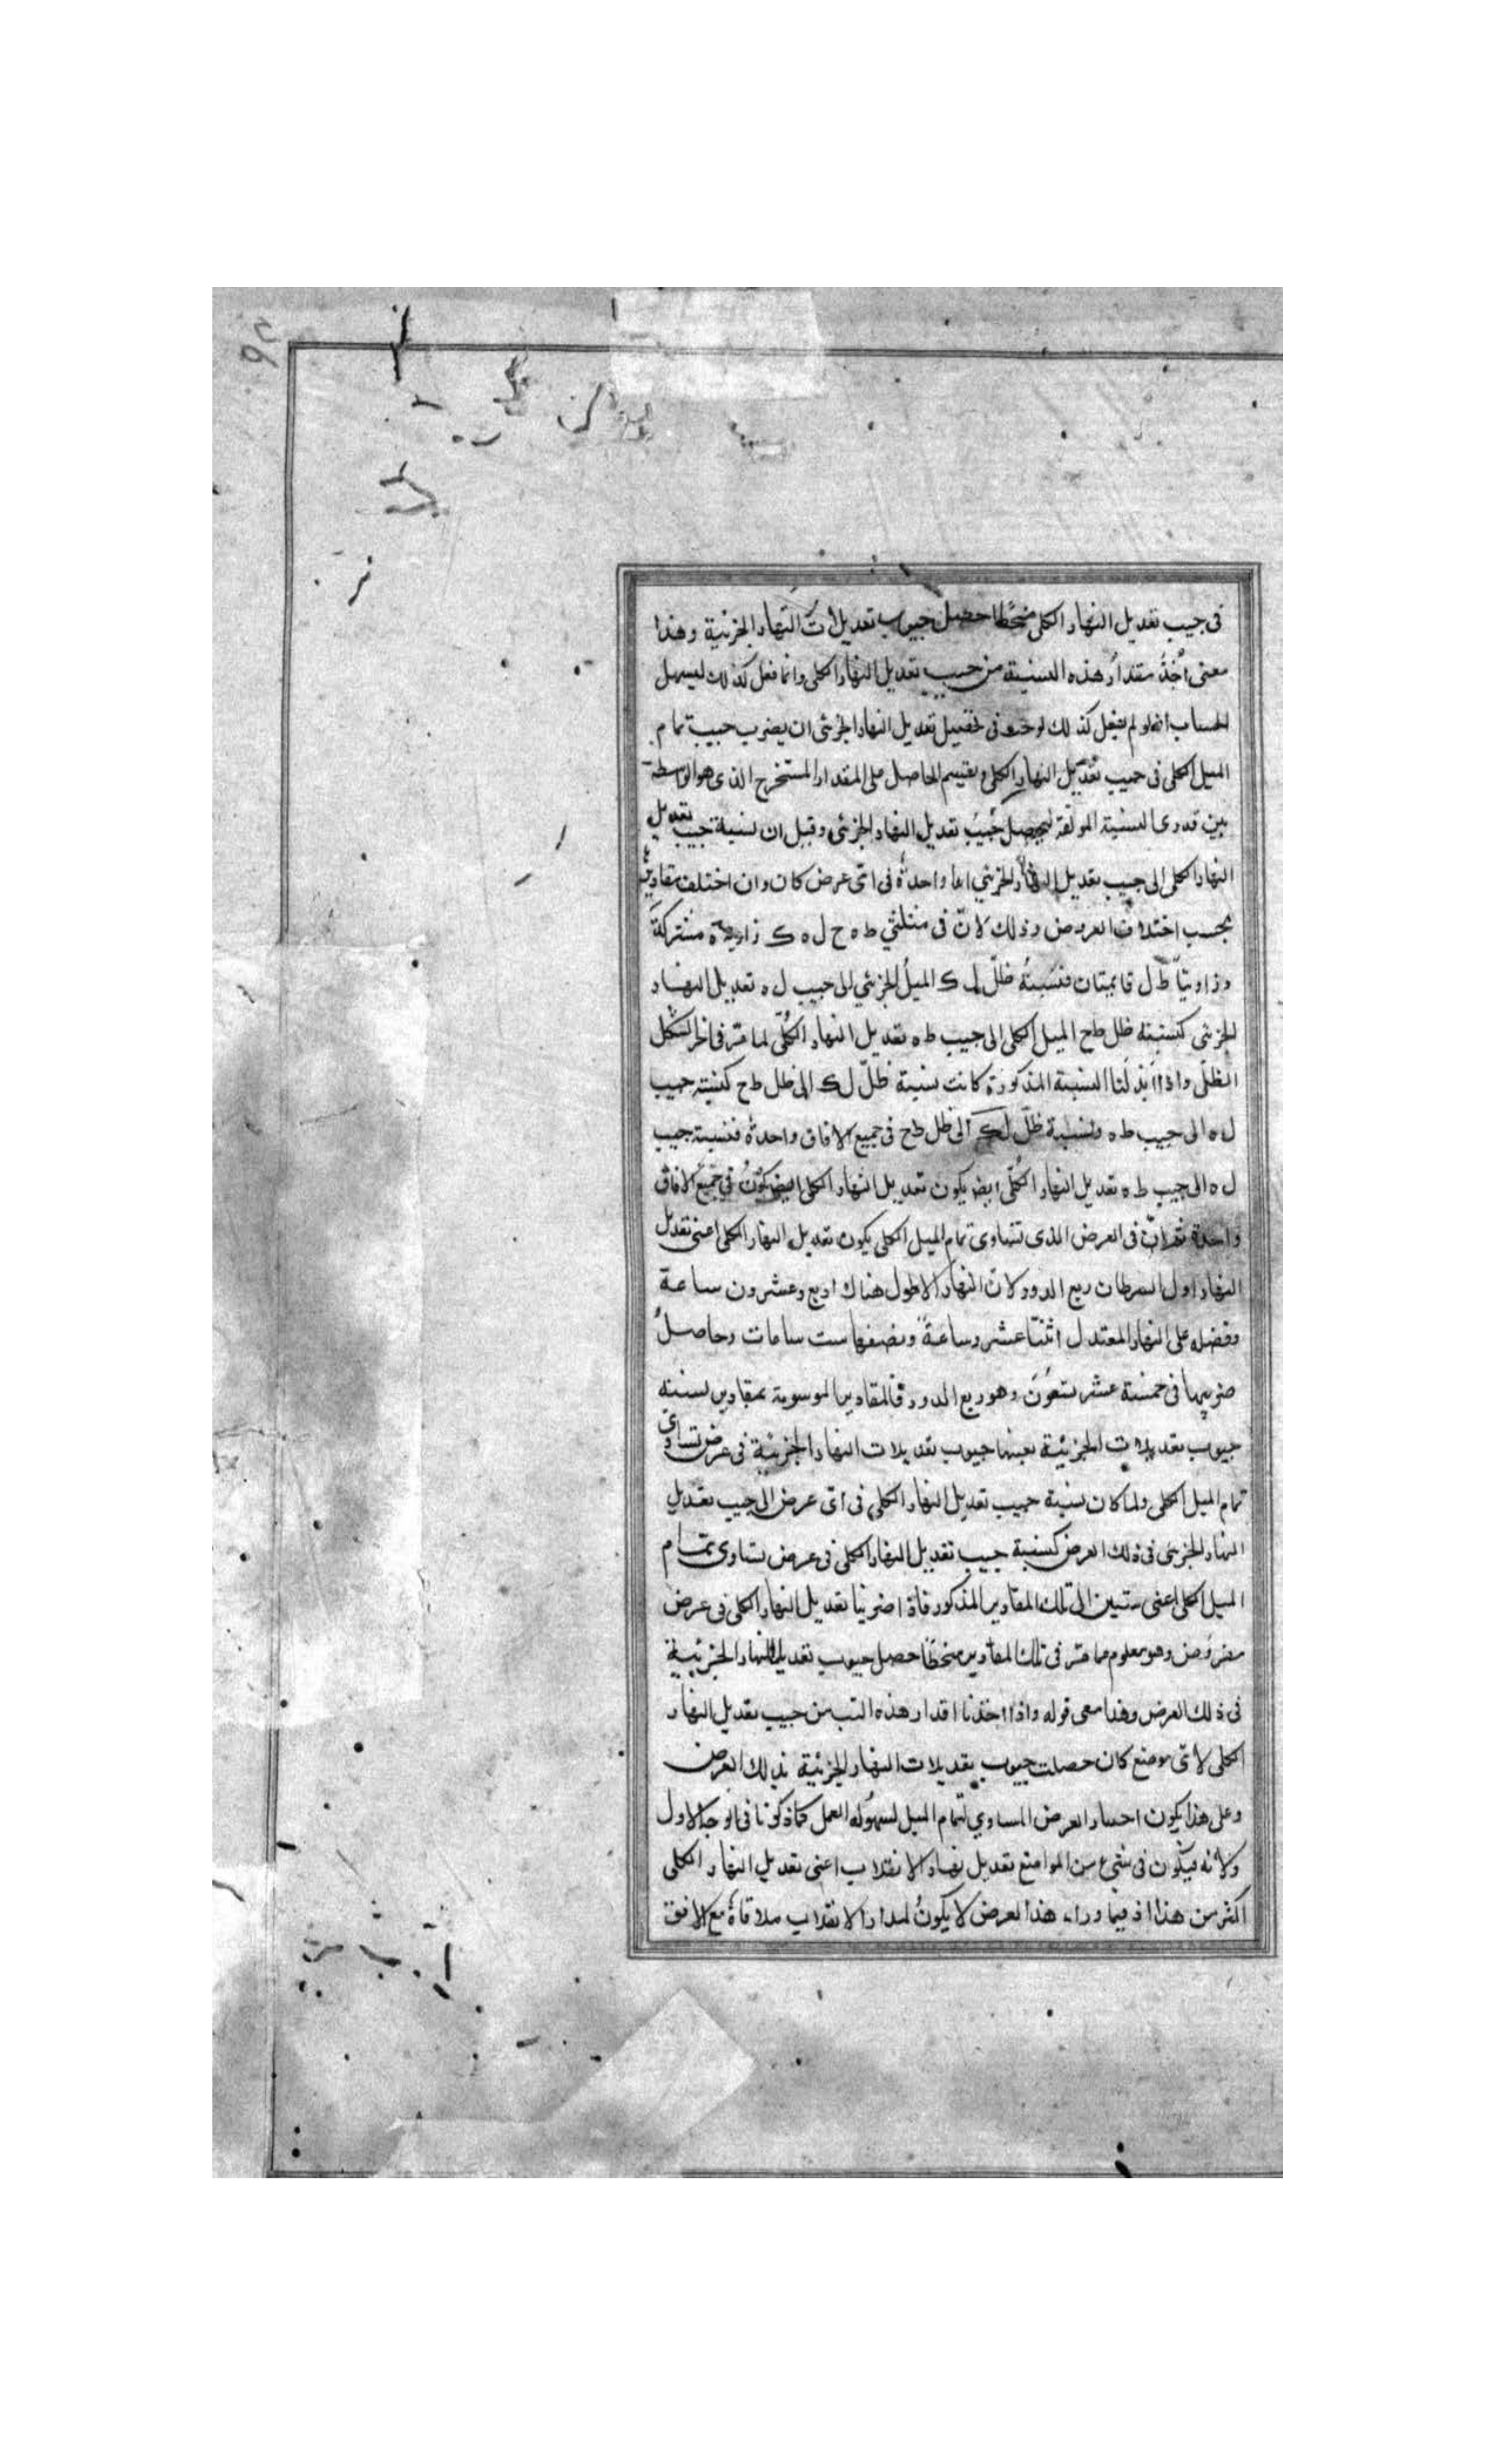 فى جيب تعديل النهار الكلى منحطا حصل جيوب تعديلات النهار الجزئية وهذا
معنى اخذ مقدار هذه النسبة من جيب تعديل النهار الكلى وانما فعل كذلك ليسهل
الحساب انه لو لم يفعل كذلك فى تحصيل تعديل النهار الجزئى ان يضرب جيب تمام
الميل الكلى فى جيب تعديل النهار الكلى ويقسم الحاصل على المقدار المستخرج الذى هو الواسطة
بين قدرى النسبة المولفة ليحصل جيب تعديل النهار الجزئى وقبل ان نسبة جيب تعديل
النهار الكلى الى جيب تعديل النهار الجزئي ابدا واحدة فى اى عرض كان وان اختلف مقاديرها
بحسب اختلاف العروض وذلك لانّ فى مثلثي ط ه ح ل ه ك زاوية ه مشتركة
وزاويتا ط ل قايمتان فنسبة ظلّ ل ك الميل الجزئي الى جيب ل ه تعديل النهار
الجزئى كنسبته ظل ط ح الميل الكلى الى جيب ط ه تعديل النهار الكلّى لما مرّ فى اخر الشكل
الظلّى واذا ابدلنا النسبة المذكورة كانت نسبة ظلّ ل ك الى ظل ط ح كنسبة جيب
ل ه الى جيب ط ه ونسبة ظلّ ل ك الى ظل ط ح فى جميع الافاق واحدة فنسبة جيب
ل ه الى جيب ط ه تعديل النهار الكلّى ايض يكون تعديل النهار الكلى ايض يكون في جميع الافاق
واحدة ثم انّ فى العرض الذى تساوى تمام الميل الكلى يكون تعديل النهار الكلى اعنى تعديل
النهار اول السرطان ربع الدور لان النهار الاطول هناك اربع وعشرون ساعة
وفضله على النهار المعتدل اثنتا عشر وساعة ونصفها ست ساعات وحاصل
ضربها فى خمسة عشر تسعون وهو ربع الدور فالمقادير الموسومة بمقادير نسبته
جيوب تعديلات الجزئية بعينها جيوب تعديلات النهار الجزئية فى عرض تساوى
تمام الميل الكلى ولما كان نسبة جيب تعديل النهار الكلى فى اى عرض الى جيب تعديل
النهار الجزئى فى ذلك العرض كنسبة جيب تعديل النهار الكلى فى عرض تساوى تمام
الميل الكلى اعنى ستين الى تلك المقادير المذكور فاذا ضربنا تعديل النهار الكلى فى عرض
مفروض وهو معلوم مما مرّ فى تلك المقادير منحطا حصل جيوب تعديل النهار الجزئية
فى ذلك العرض وهذا معى قوله واذا اخذنا اقدار هذه النسب من جيب تعديل النهار
الكلى لاى موضع كان حصلت جيوب تعديلات النهار الجزئية لذلك العرض
وعلى هذا يكون اختيار العرض المساوي لتمام الميل لسهولة العمل كما ذكرنا فى الوجه الاول
ولانه فيكون فى شيء من المواضع تعديل نهار الانقلاب اعنى تعديل النهار الكلى
اكثر من هذا اذ فيما وراء هذا العرض لا يكون لمدار الانقلاب ملاقاة مع الافق